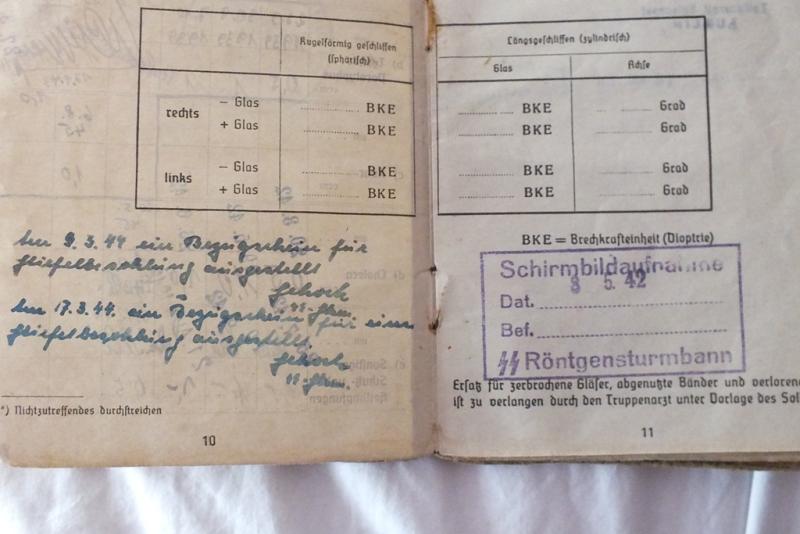 Kugelförmig geschliffen
(sphärisch)
rechts
– Glas BKE
+ Glas BKE
links
– Glas BKE
+ Glas BKE
Am 9.3.44 ein Bezugschein für
Stiefelbesohlung ausgestellt
Am 17.3.44. ein Bezugschein für eine
Stiefelbesohlung ausgestellt.
*) Nichtzutreffendes durchstreichen
10
Längsgeschliffen (zylindrisch)
Glas Achse
BKE Grad
BKE Grad
BKE Grad
BKE Grad
BKE = Brechkrafteinheit (Dioptrie)
Schirmbildaufnahme
Dat. 8 5. 42
Bef.
ᛋᛋ Röntgensturmbann
Ersatz für zerbrochene Gläser, abgenutzte Bänder und verlorene
ist zu verlangen durch den Truppenarzt unter Vorlage des Sol
11